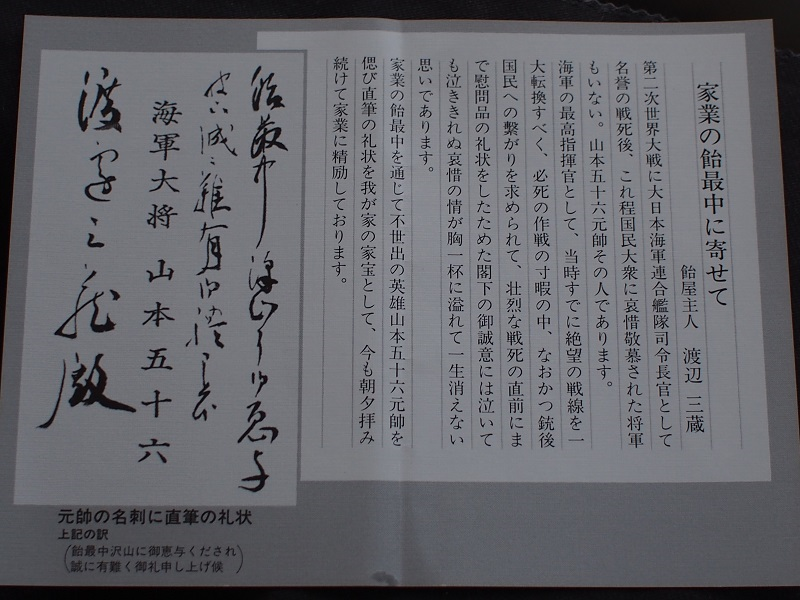 家業の飴最中に寄せて
飴屋主人 渡辺 三蔵
第二次世界大戦に大日本海軍連合艦隊司令長官として
名誉の戦死後、これ程国民大衆に哀惜敬慕された将軍
もいない。山本五十六元帥その人であります。
海軍の最高指揮官として、当時すでに絶望の戦線を一
大転換すべく、必死の作戦の寸暇の中、なおかつ銃後
国民への繋がりを求められて、壮烈な戦死の直前にま
で慰問品の礼状をしたためた閣下の御誠意には泣いて
も泣ききれぬ哀惜の情が胸一杯に溢れて一生消えない
思いであります。
家業の飴最中を通じて不世出の英雄山本五十六元帥を
偲び直筆の礼状を我が家の家宝として、今も朝夕拝み
続けて家業に精励しております。
飴最中沢山に御恵与
誠に難有御礼
海軍大将 山本五十六
渡辺三蔵殿
元帥の名刺に直筆の礼状
上記の訳
(飴最中沢山に御恵与くだされ
誠に有難く御礼申し上げ候)